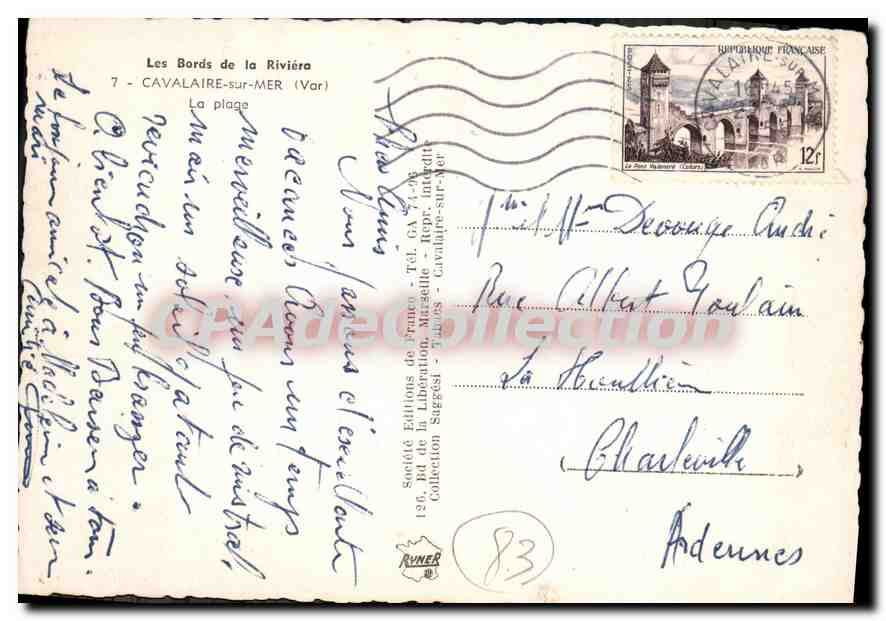 Les Bords de la Riviéra
7 - CAVALAIRE-sur-MER (Var)
La plage
Chers Amis
Nous passons d'excellente
vacances Avons un temps
merveilleuse, un peu de mistral,
mais un soleil d'atout
reviendrons un peu bronzer.
A bientot. Bons Baisers a tous.
Le bonjour amical à et son
mari
Société Editions de France - Tél. GA 74-96
126, Bd de la Libération, Marseille - Repr. interdite
Collection Saggési - Tabacs - Cavalaire-sur-Mer
RYNER
REPUBLIQUE FRANÇAISE
POSTES
Le Pont Valentré (Cahors)
12f
CAVALAIRE-SUR
Mr et Mme Devouge André
Rue Albert Poulain
La Houillère
Charleville
Ardennes
83
CPAdeCollection